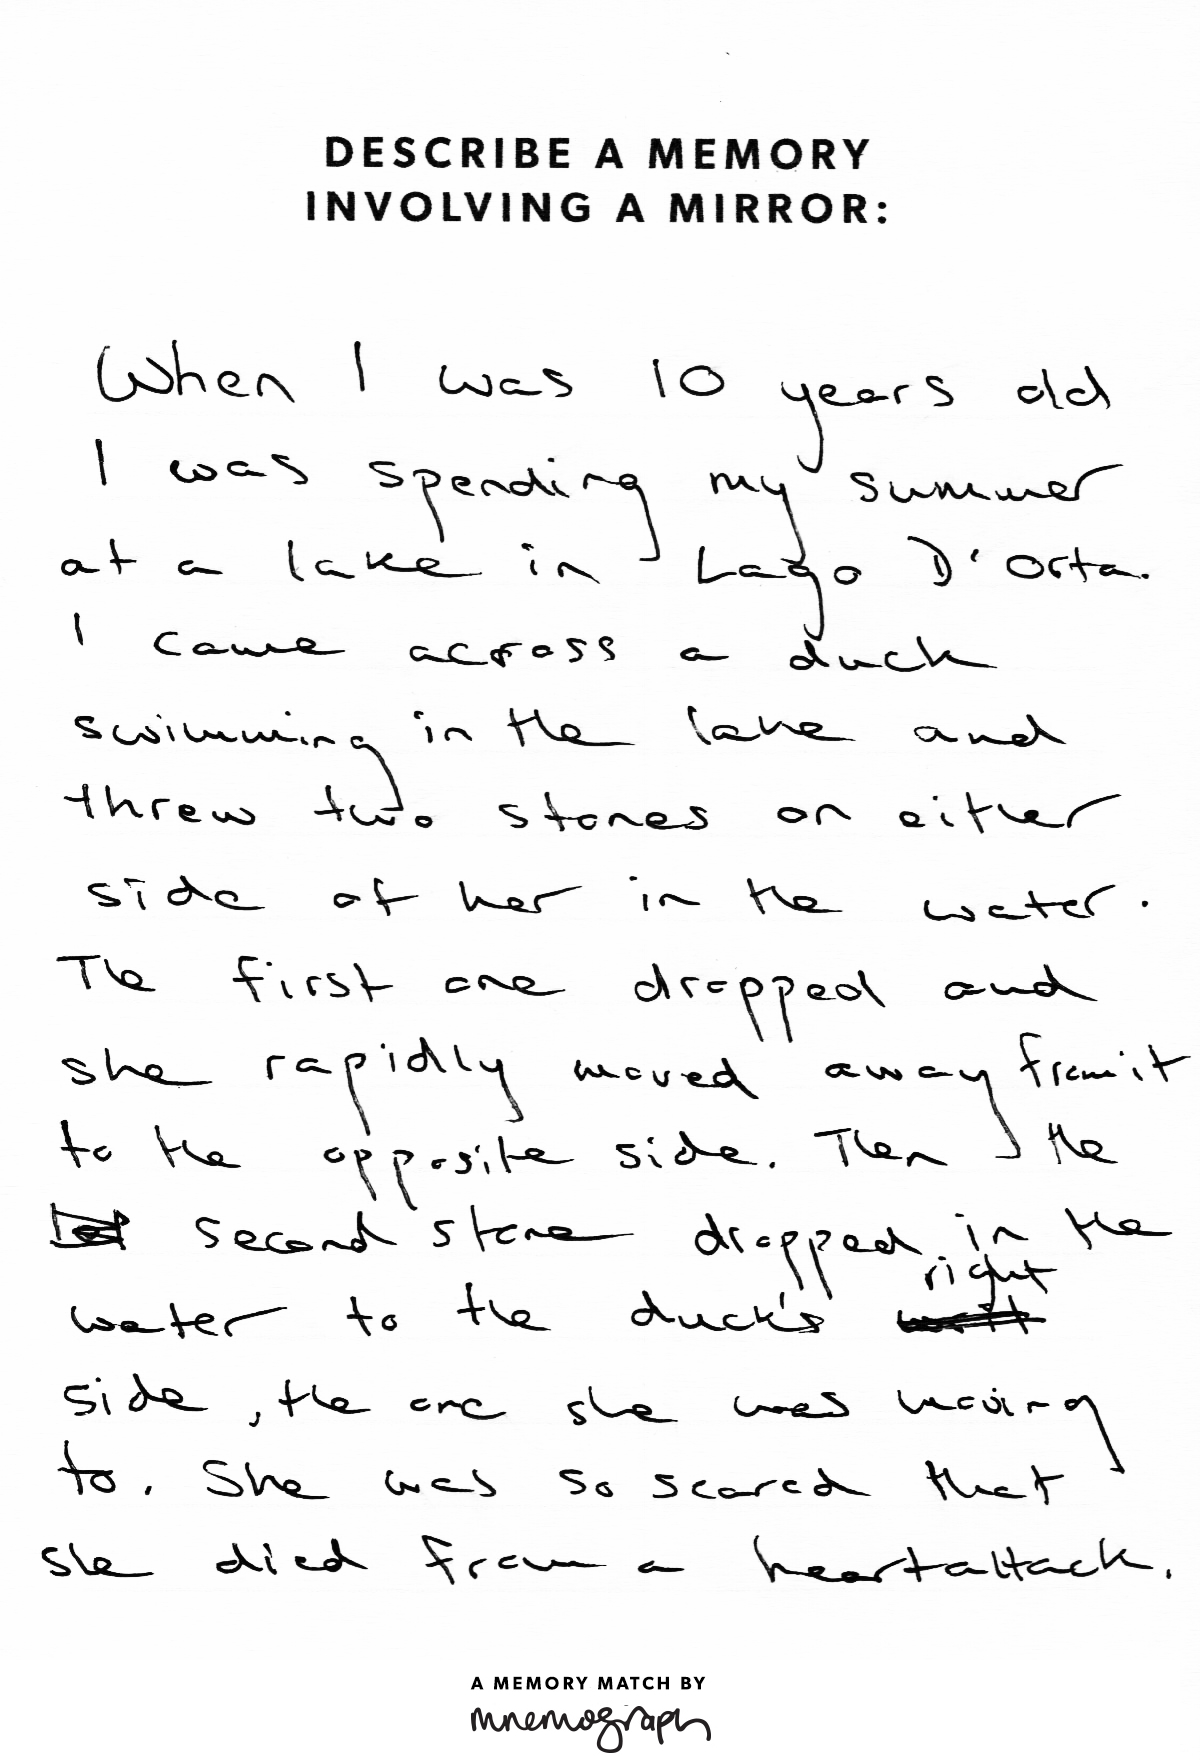 DESCRIBE A MEMORY
INVOLVING A MIRROR:
When I was 10 years old
I was spending my summer
at a lake in Lago D'Orta.
I came across a duck
swimming in the lake and
threw two stones on either
side of her in the water.
The first one dropped and
she rapidly moved away from it
to the opposite side. Then the
second stone dropped in the
right
water to the duck's
side, the one she was moving
to. She was so scared that
she died from a heartattack.
A MEMORY MATCH BY
mnemograph